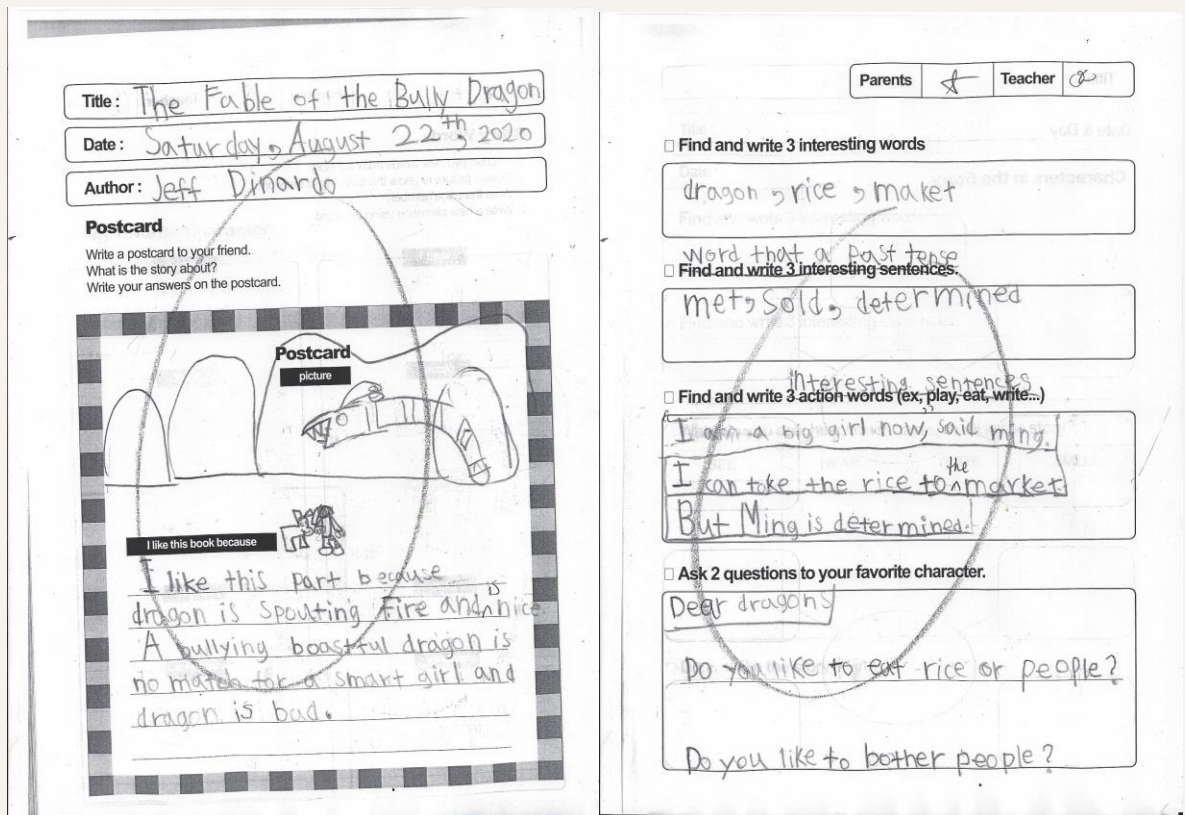 Title : The Fable of the Bully Dragon
Date : Saturday, August 22th, 2020
Author : Jeff Dinardo
Postcard
Write a postcard to your friend.
What is the story about?
Write your answers on the postcard.
Postcard
picture
I like this book because
I like this part because
dragon is spouting fire and is nice.
A bullying boastful dragon is
no match for a smart girl and
dragon is bad.
Parents Teacher
Find and write 3 interesting words
dragon, rice, maket
word that a past tense
Find and write 3 interesting sentences.
met, sold, determined
interesting sentences
Find and write 3 action words (ex, play, eat, write...)
"I am a big girl now," said ming.
I can take the rice to the market
But Ming is determined.
Ask 2 questions to your favorite character.
Dear dragons
Do you like to eat rice or people?
Do you like to bother people?